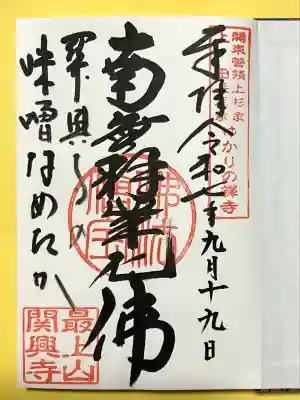 関東管領上杉家
ゆかりの禅寺
奉拝 令和元年九月十九日
南無釋迦牟尼佛
佛法僧宝
関興寺の
味噌なめたか
最上山
関興寺